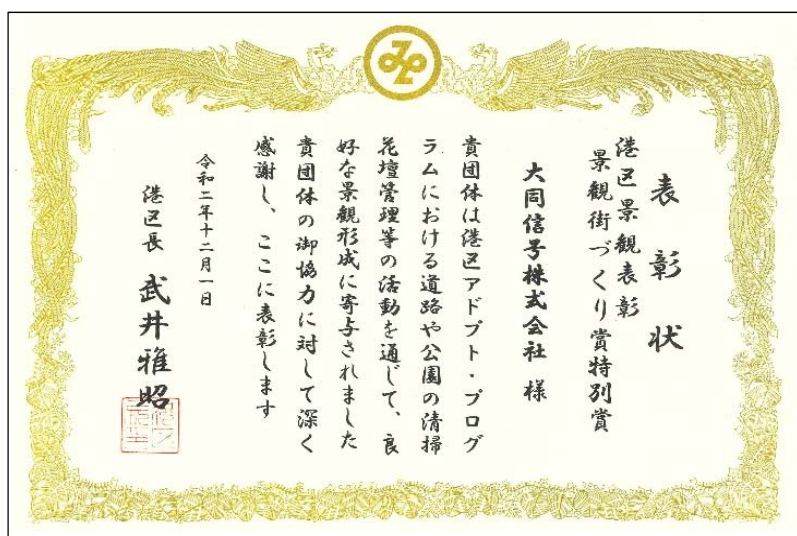 表彰状
港区景観表彰
景観街づくり賞特別賞
大同信号株式会社 様
貴団体は港区アドプト・プログ
ラムにおける道路や公園の清掃
花壇管理等の活動を通じて、良
好な景観形成に寄与されました
貴団体の御協力に対して深く
感謝し、ここに表彰します
令和二年十二月一日
港区長 武井雅昭